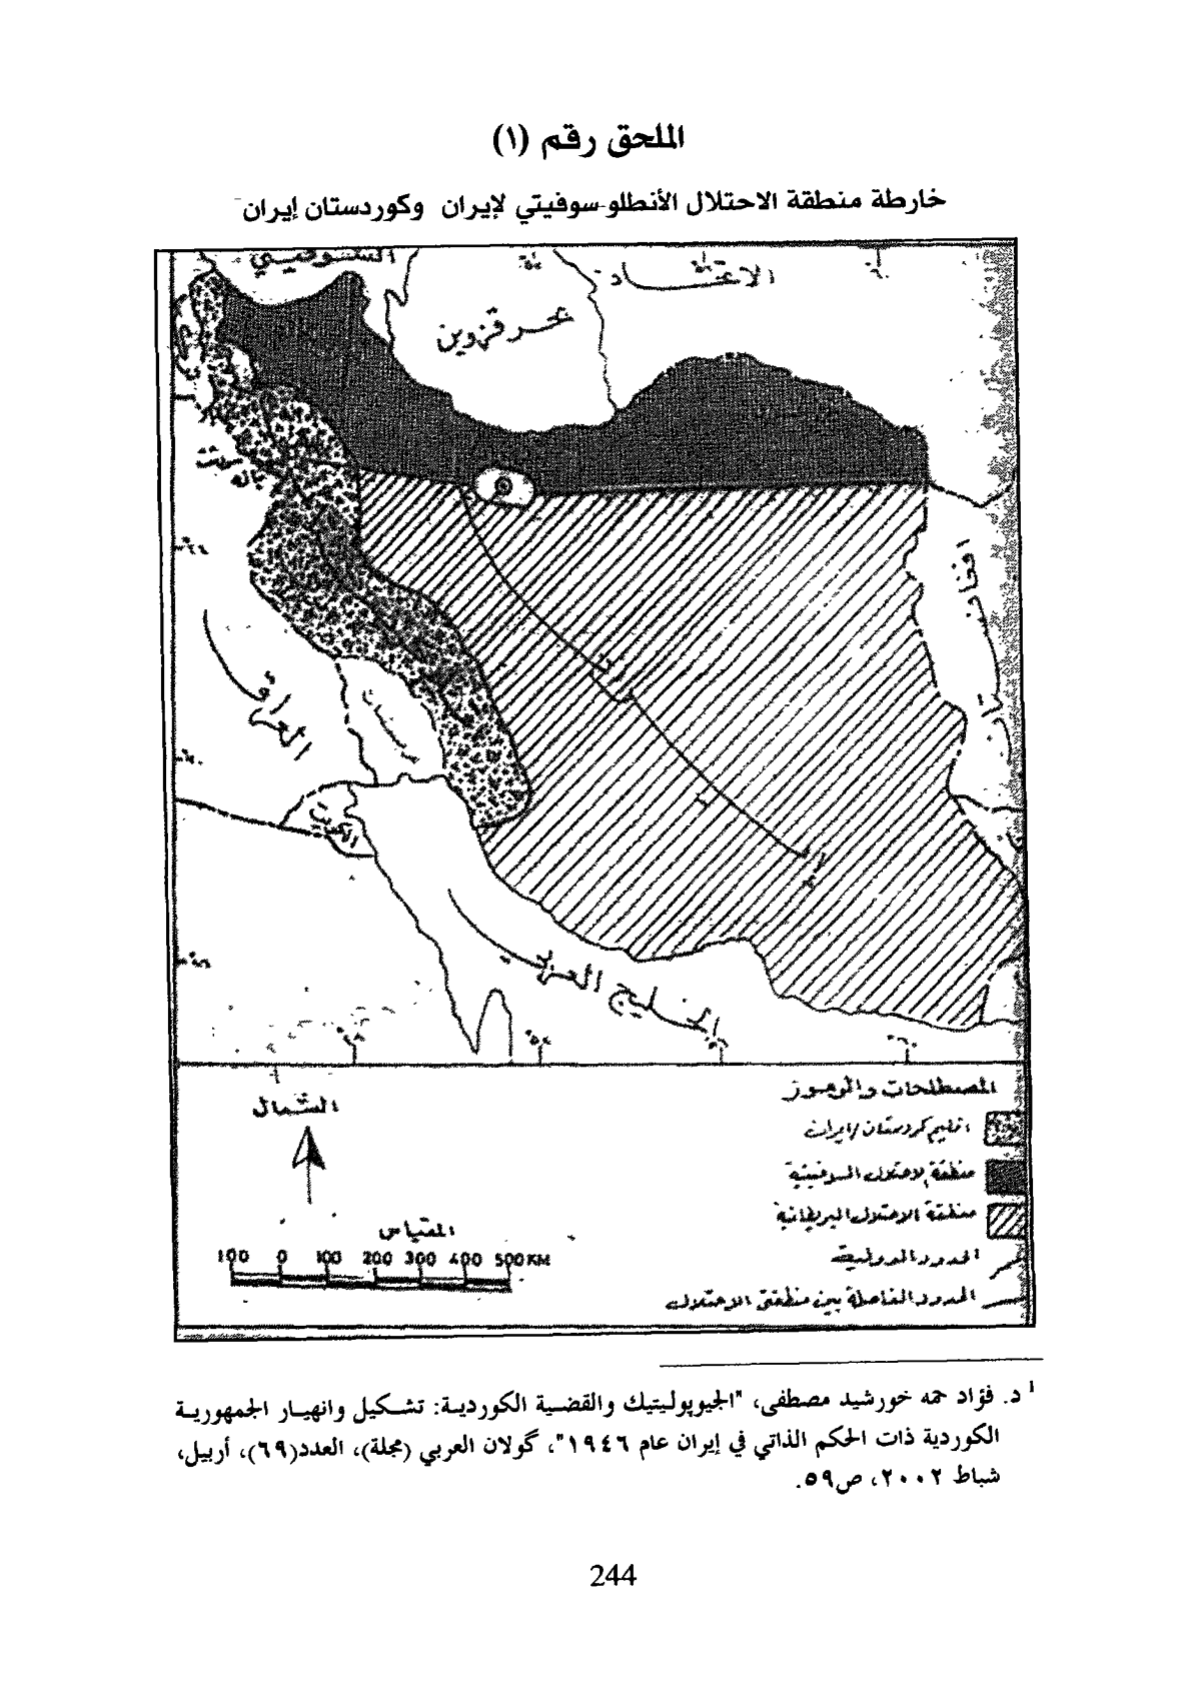 الملحق رقم (١)
خارطة منطقة الاحتلال الأنطلو-سوفيتي لإيران وكوردستان إيران
السوفيتي
الاتحاد
بحر قزوين
افغانستان
العراق
عربستان
الكويت
الخليج العربي
المصطلحات والرموز
اقليم كردستان ايران
منطقة الاحتلال السوفيتية
منطقة الاحتلال البريطانية
الحدود الدولية
الحدود الفاصلة بين منطقتي الاحتلال
الشمال
المقياس
100 0 100 200 300 400 500 KM
1 د. فؤاد حمه خورشيد مصطفى، "الجيوپوليتيك والقضية الكوردية: تشكيل وانهيار الجمهورية
الكوردية ذات الحكم الذاتي في إيران عام ١٩٤٦"، گولان العربي (مجلة)، العدد(٦٩)، أربيل،
شباط ٢٠٠٢، ص٥٩.
244